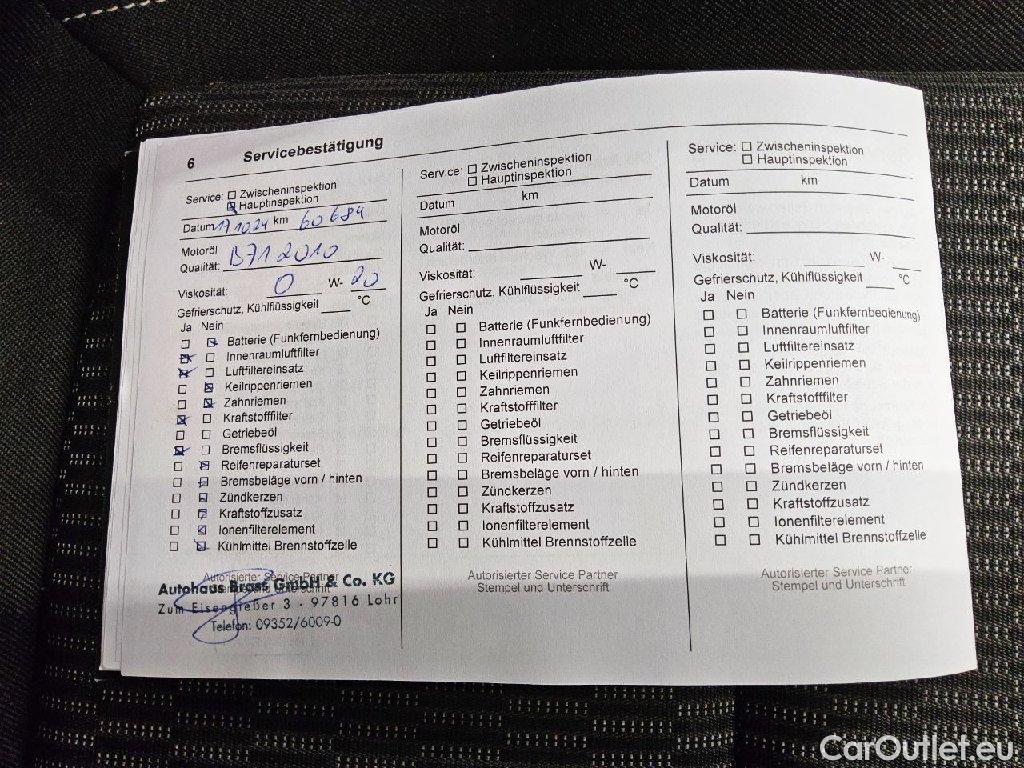 6 Servicebestätigung
Service: Zwischeninspektion
Hauptinspektion
Datum 171024 km 60684
Motoröl
Qualität: B71 2010
Viskosität: 0 W- 20
Gefrierschutz, Kühlflüssigkeit °C
Ja Nein
Batterie (Funkfernbedienung)
Innenraumluftfilter
Luftfiltereinsatz
Keilrippenriemen
Zahnriemen
Kraftstofffilter
Getriebeöl
Bremsflüssigkeit
Reifenreparaturset
Bremsbeläge vorn / hinten
Zündkerzen
Kraftstoffzusatz
Ionenfilterelement
Kühlmittel Brennstoffzelle
Autorisierter Service Partner
Autohaus Brast GmbH & Co. KG
Zum Eisengießer 3 - 97816 Lohr
Telefon: 09352/6009-0
Service: Zwischeninspektion
Hauptinspektion
Datum km
Motoröl
Qualität:
Viskosität: W-
Gefrierschutz, Kühlflüssigkeit °C
Ja Nein
Batterie (Funkfernbedienung)
Innenraumluftfilter
Luftfiltereinsatz
Keilrippenriemen
Zahnriemen
Kraftstofffilter
Getriebeöl
Bremsflüssigkeit
Reifenreparaturset
Bremsbeläge vorn / hinten
Zündkerzen
Kraftstoffzusatz
Ionenfilterelement
Kühlmittel Brennstoffzelle
Autorisierter Service Partner
Stempel und Unterschrift
Service: Zwischeninspektion
Hauptinspektion
Datum km
Motoröl
Qualität:
Viskosität: W-
Gefrierschutz, Kühlflüssigkeit °C
Ja Nein
Batterie (Funkfernbedienung)
Innenraumluftfilter
Luftfiltereinsatz
Keilrippenriemen
Zahnriemen
Kraftstofffilter
Getriebeöl
Bremsflüssigkeit
Reifenreparaturset
Bremsbeläge vorn / hinten
Zündkerzen
Kraftstoffzusatz
Ionenfilterelement
Kühlmittel Brennstoffzelle
Autorisierter Service Partner
Stempel und Unterschrift
CarOutlet.eu